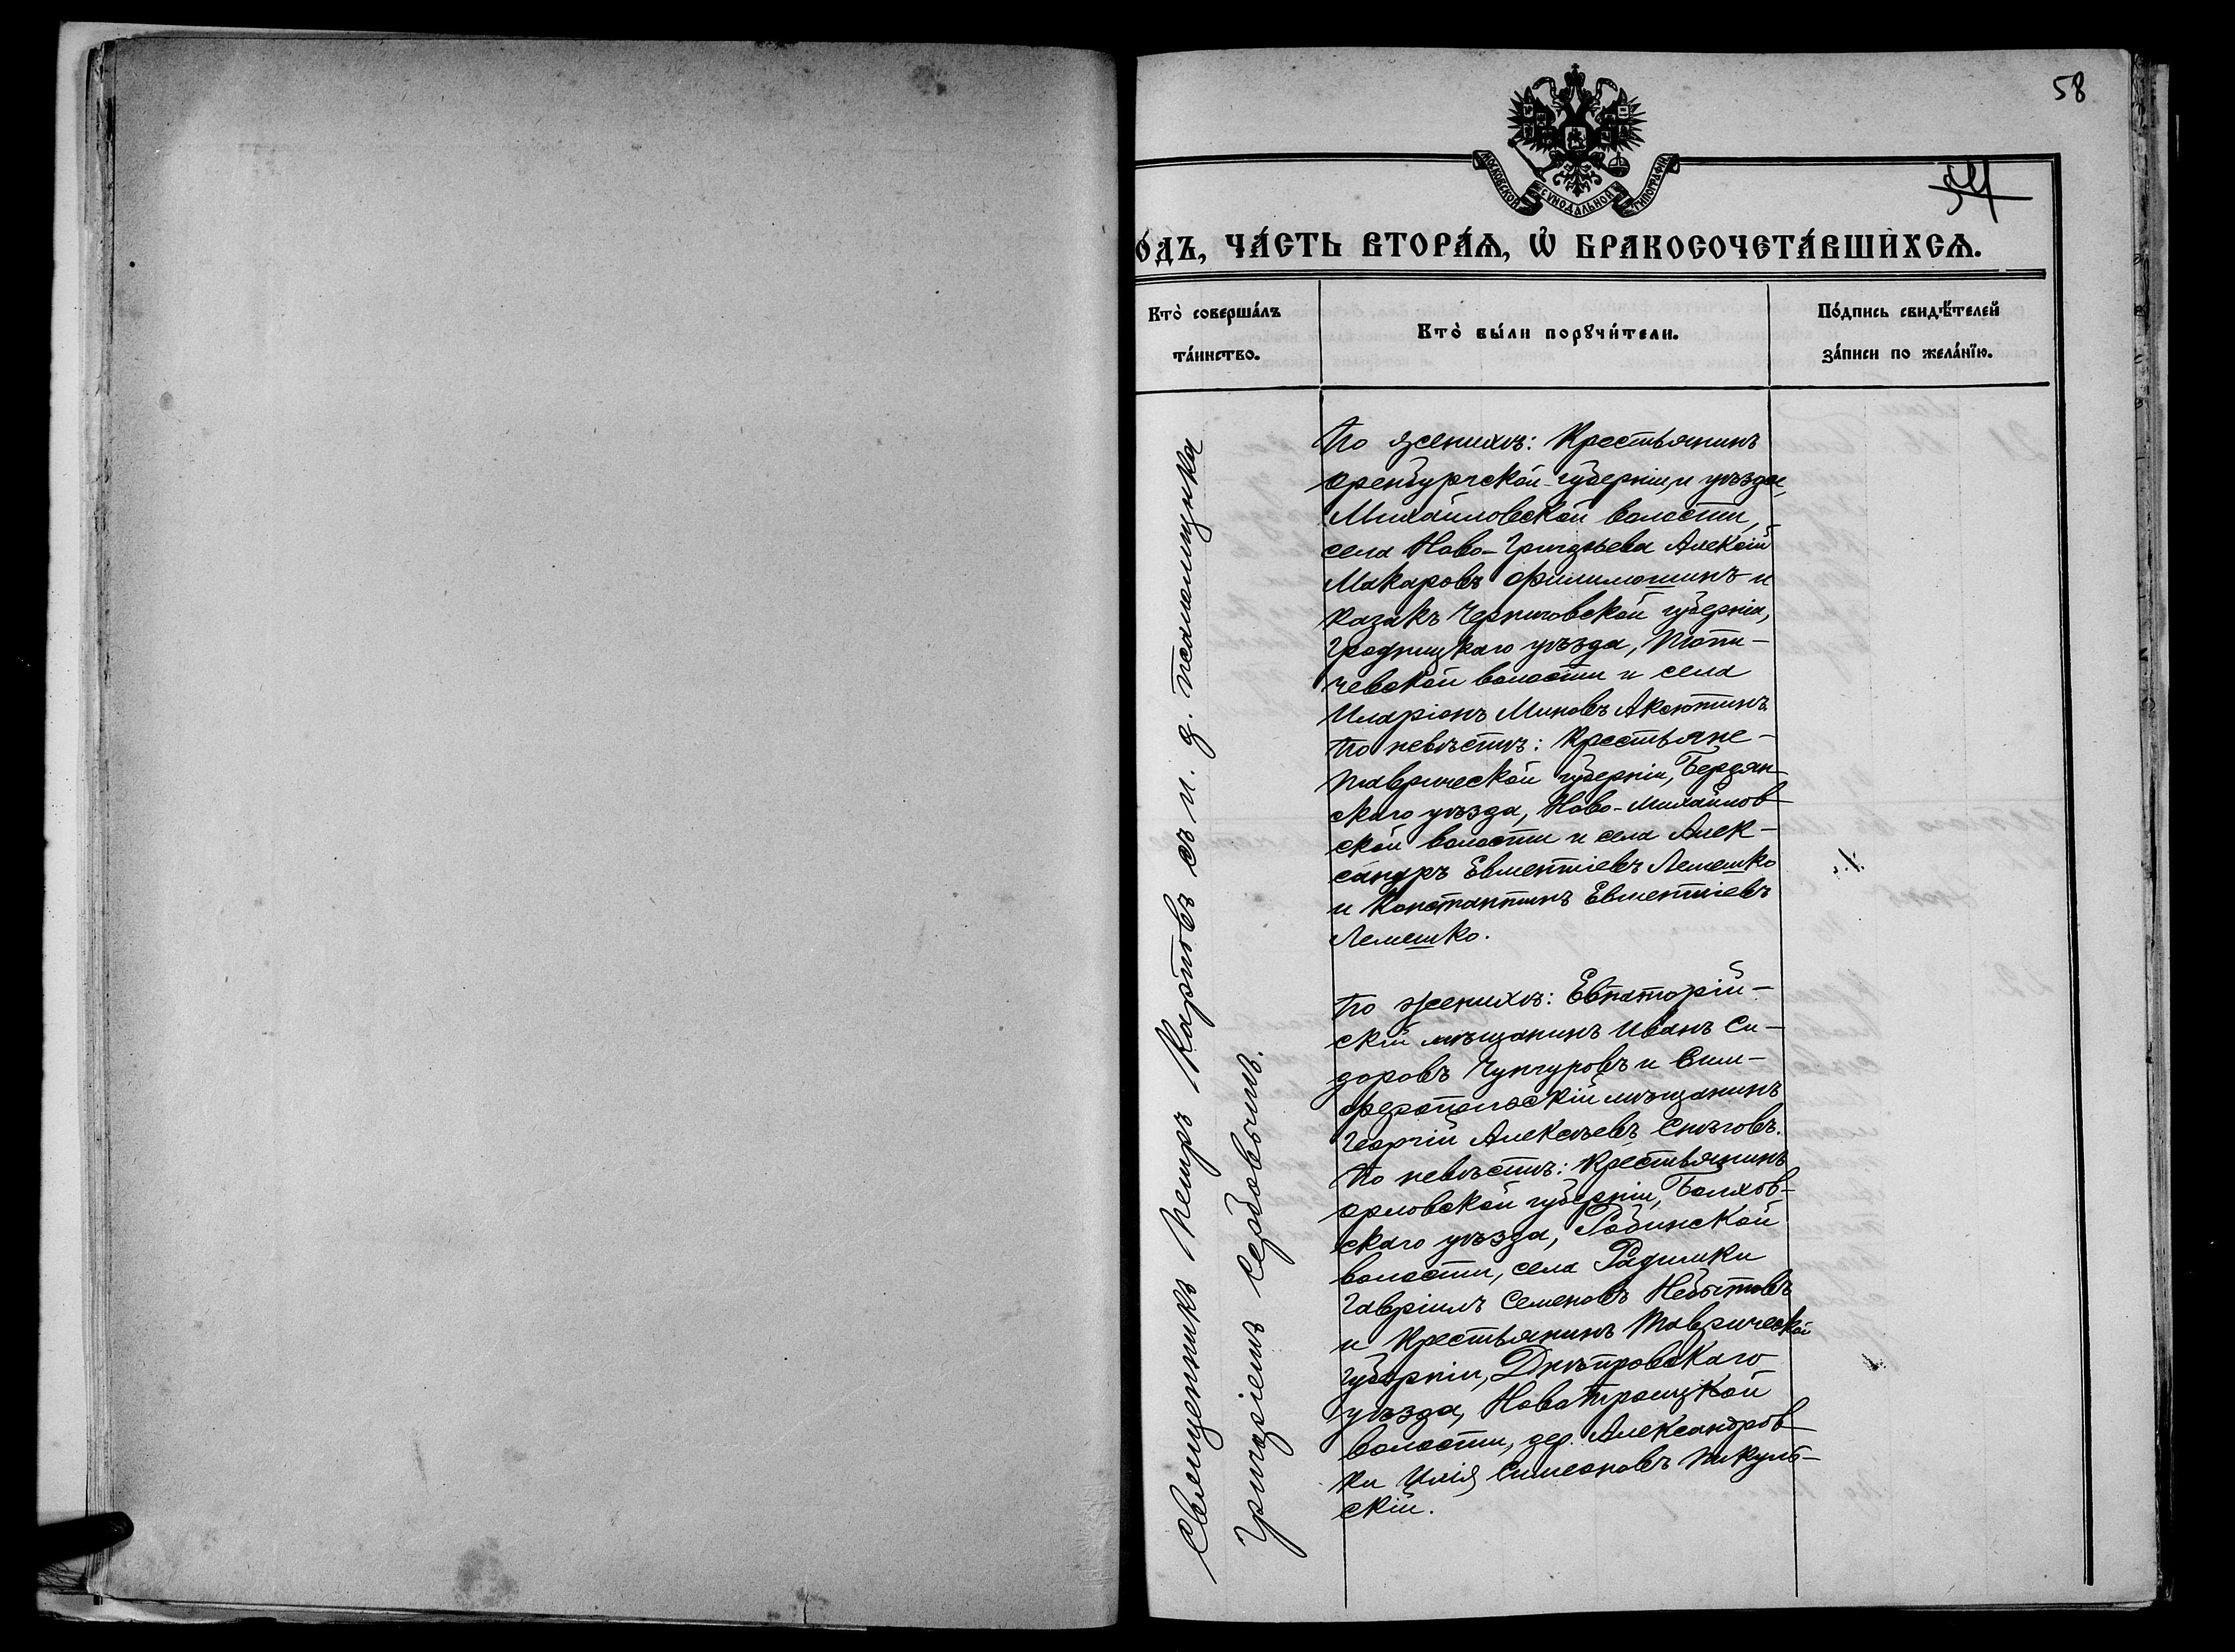 58
54
МОСКОВСКОЙ СѴНОДАЛЬНОЙ ТИПОГРАФІИ
о́дъ, ча́сть втора́ѧ, ѡ҆ бракосочета́вшихсѧ.
Кто̀ соверша́лъ
та́инство.
Кто̀ бы́ли порꙋчи́тели.
По́дпись свидѣ́телей
за́писи по жела́нїю.
Священникъ Петръ Карповъ съ и. д. псаломщика
Григоріемъ Сербовымъ.
По женихѣ: Крестьянинъ
Оренбургской губерніи и уѣзда,
Михайловской волости,
села Ново-Григорьева Алексій
Макаровъ Филимошинъ и
казакъ Черниговской губерніи,
Градницкаго уѣзда, Топи-
чевской волости и села
Иларіонъ Миновъ Аксютинъ
По невѣстѣ: Крестьяне
Таврической губерніи, Бердян-
скаго уѣзда, Ново-Михайлов-
ской волости и села Алек-
сандръ Евментіевъ Лемешко
и Константинъ Евментіевъ
Лемешко.
По женихѣ: Евпаторій-
скій мѣщанинъ Иванъ Си-
доровъ Чунгуровъ и Сим-
ферапольскій мѣщанинъ
Георгій Алексѣевъ Снѣговъ.
По невѣстѣ: Крестьянинъ
Орловской губерніи, Болхов-
скаго уѣзда, волости, села Радимки
Гавріилъ Семеновъ Небытовъ
и Крестьянинъ Таврической
губерніи, Днѣпровскаго
уѣзда, Новотроицкой
волости, дер. Александров-
ки Илія Симеоновъ Пикуль-
скій.